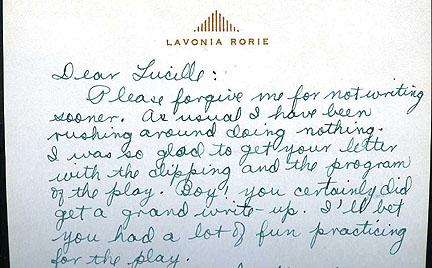 LAVONIA RORIE
Dear Lucille:
Please forgive me for not writing
sooner. As usual I have been
rushing around doing nothing.
I was so glad to get your letter
with the clipping and the program
of the play. Boy! you certainly did
get a grand write-up. I'll bet
you had a lot of fun practicing
for the play.